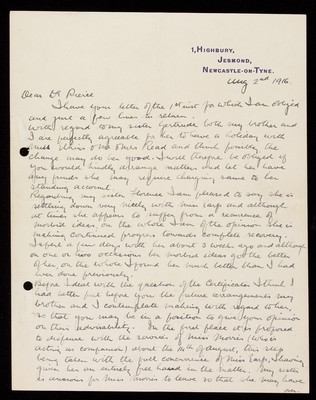 1, HIGHBURY,
JESMOND,
NEWCASTLE-ON-TYNE.
Aug 2nd 1916.
Dear Dr Pierce
I have your letter of the 1st inst for which I am obliged
and just a few lines in return.
With regard to my sister Gertrude both my brother and
I are perfectly agreeable for her to have a holiday with
Miss and Read and think possibly the
change may do her good. I will therefore be obliged if
you would kindly arrange matters and let her have
any funds she may require charging same to her
standing account.
Regarding my sister Florence I am pleased to say she is
settling down very nicely with Miss Earp and although
at times she appears to suffer from a recurrence of
morbid ideas, on the whole I am of the opinion she is
making continued progress towards complete recovery.
I spent a few days with her about 3 weeks ago and although
on one or two occasions her morbid ideas got the better
of her, on the whole I found her much better than I had
even done previously.
Before I deal with the question of the Certificates I think I
had better put before you the future arrangements my
brother and I contemplate making with regard to her,
so that you may be in a position to give your opinion
on their advisability. In the first place it is proposed
to dispense with the services of Miss Morris (who is
acting as companion) about the of August, this step
being taken with the full concurrence of Miss Earp, I having
given her an entirely free hand in the matter. My sister
is anxious for Miss Morris to leave so that she may have